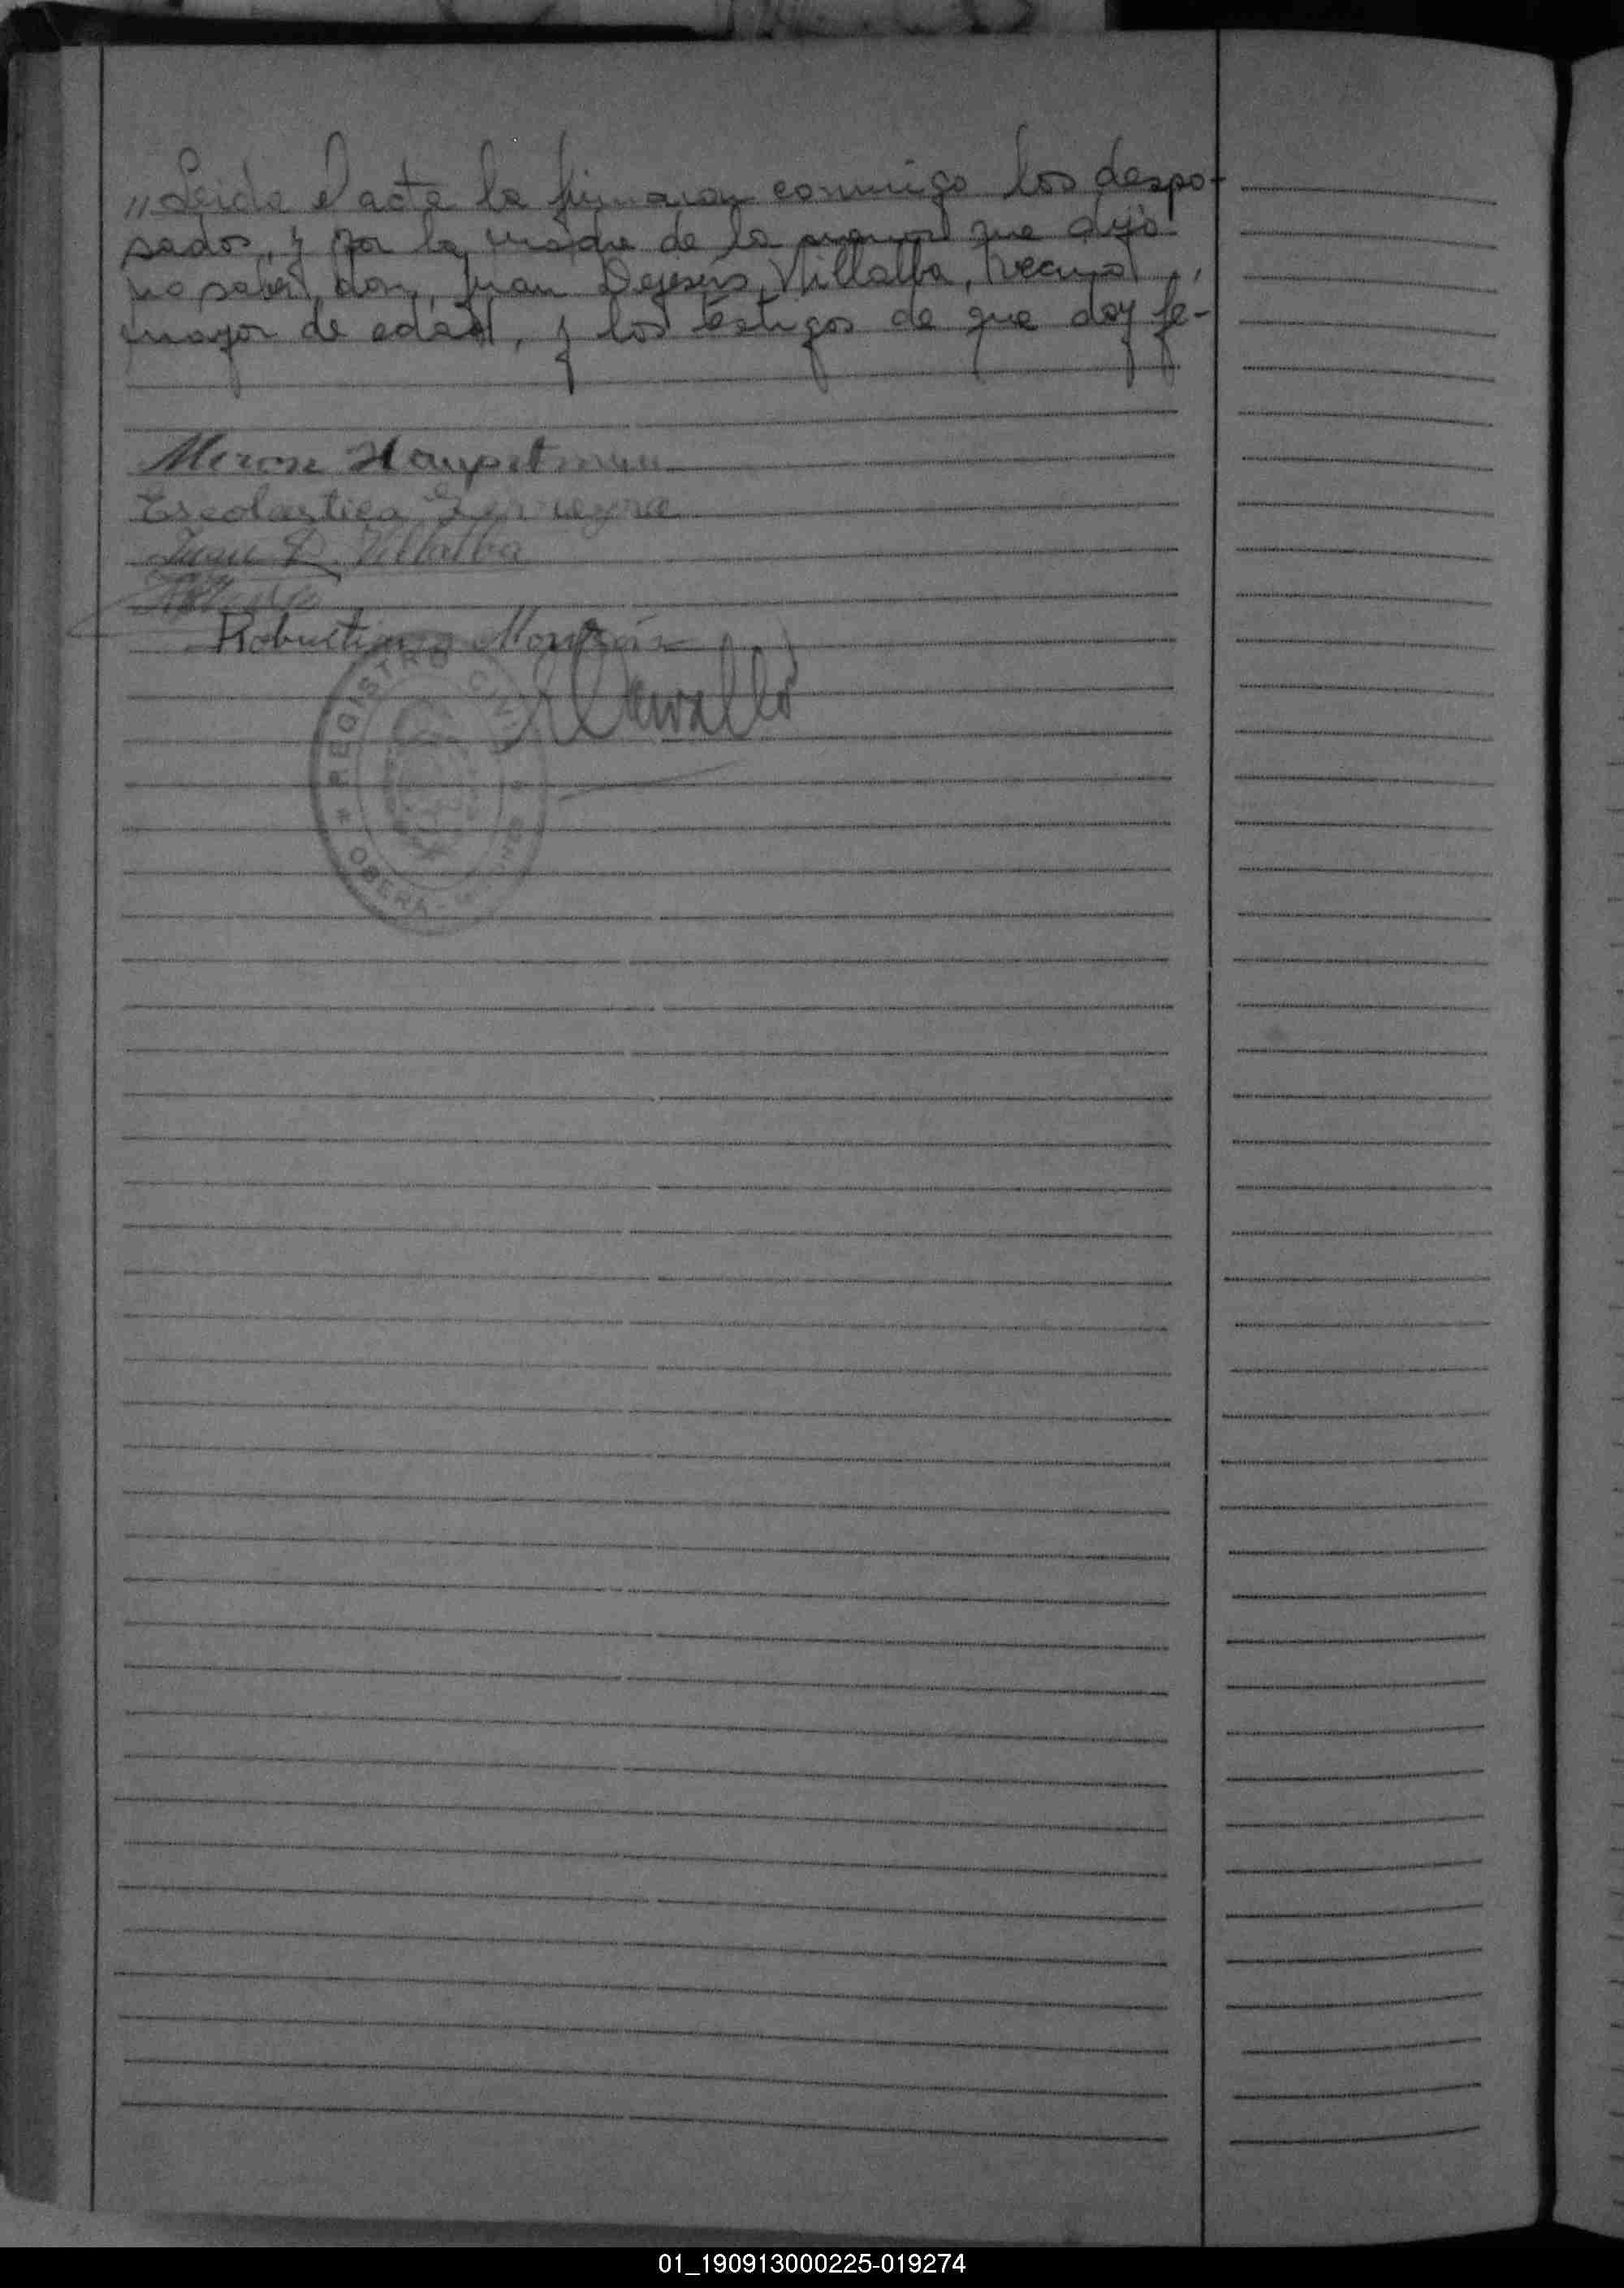 „Leida el acta la firmaron conmigo los despo-
sados, y por la madre de la menor que dijo
no saber, don, Juan Dejesús Villalba, vecino,
mayor de edad, y los testigos de que doy fe-
Meron Hauptman
Escolastica Ferreyra
Juan D. Villalba
Robustiano Monzón
Carvallo
* REGISTRO CIVIL *
OBERA - MISIONES
01_190913000225-019274